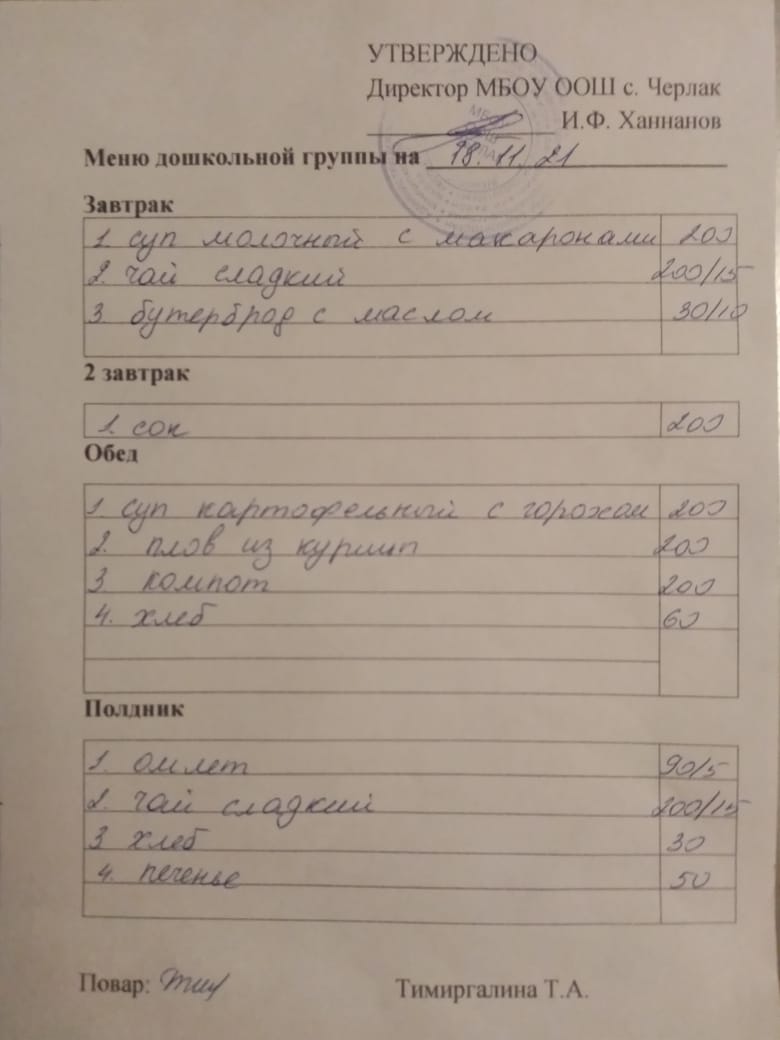 УТВЕРЖДЕНО
Директор МБОУ ООШ с. Черлак
И.Ф. Ханнанов
Меню дошкольной группы на 18.11.21
Завтрак
1 суп молочный с макаронами 200
2. чай сладкий 200/15
3. бутерброд с маслом 30/10
2 завтрак
1. сок 200
Обед
1. суп картофельный с горохом 200
2. плов из курицы 200
3 компот 200
4. хлеб 60
Полдник
1. омлет 90/5
2. чай сладкий 200/15
3 хлеб 30
4. печенье 50
Повар: Тимиргалина Т.А.